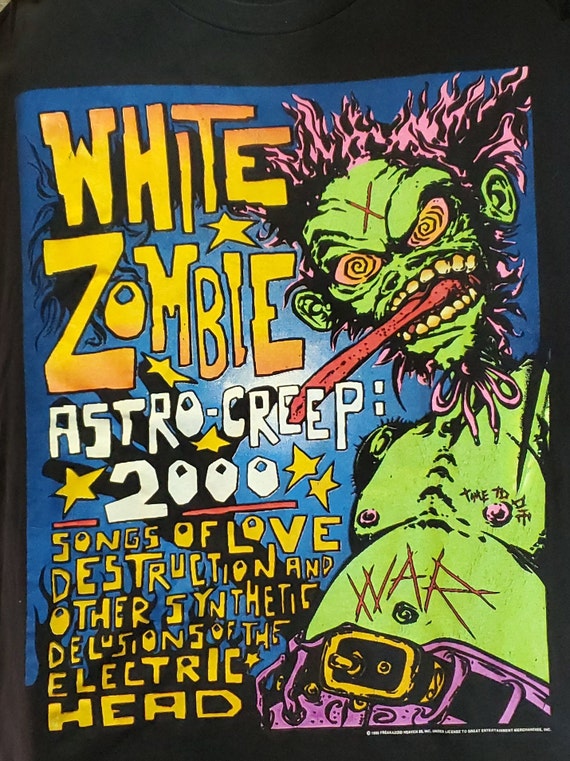 WHITE
ZOMBIE
ASTRO-CREEP:
2000
SONGS OF LOVE
DESTRUCTION AND
OTHER SYNTHETIC
DELUSIONS OF THE
ELECTRIC
HEAD
TIME TO
WAR
© 1995 FREAKAZOID HEAVEN 20, INC. UNDER LICENSE TO GREAT ENTERTAINMENT MERCHANDISE, INC.